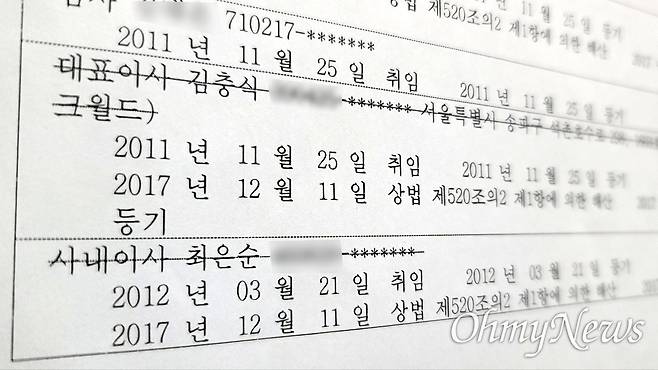 감사 710217-*******
2011 년 11 월 25 일 취임 2011 년 11 월 25 일 등기
제520조의2 제1항에 의한 해산
대표이사 김충식 -******* 서울특별시 송파구 석촌호수로
크월드)
2011 년 11 월 25 일 취임 2011 년 11 월 25 일 등기
2017 년 12 월 11 일 상법 제520조의2 제1항에 의한 해산 2017
등기
사내이사 최은순 -*******
2012 년 03 월 21 일 취임 2012 년 03 월 21 일 등기
2017 년 12 월 11 일 상법 제520조의2 제1항에 의한 해산
OhmyNews